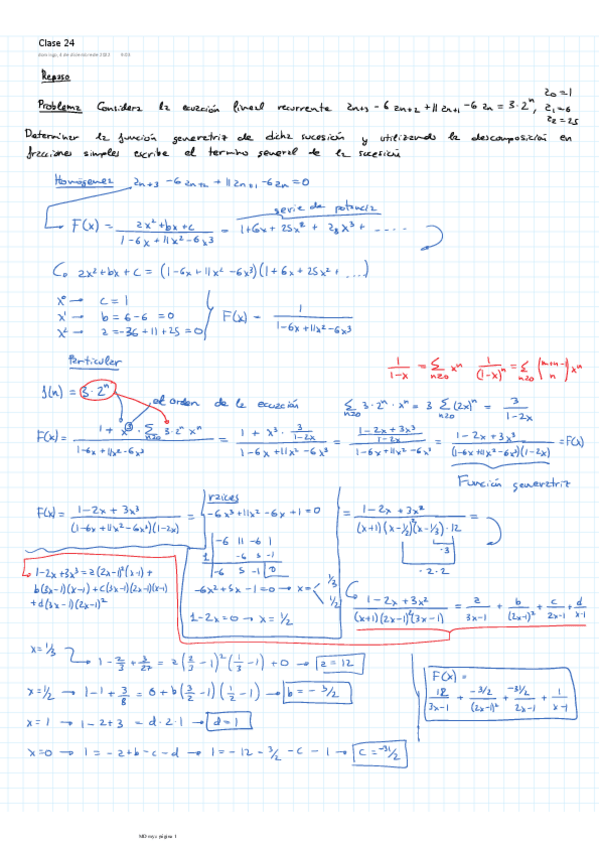 Clase 24
Repaso
Problema Considera la ecuación lineal recurrente Zn+3 - 6Zn+2 + 11Zn+1 - 6Zn = 3·2ⁿ, Z₀=1
Z₁=6
Z₂=25
Determinar la función generatriz de dicha sucesión y utilizando la descomposición en
fracciones simples escribe el termino general de la sucesión
Homogénea Zn+3 - 6Zn+2 + 11Zn+1 - 6Zn = 0
serie de potencia
F(x) = (ax² + bx + c)/(1-6x+11x²-6x³) = 1+6x+25x²+ZₙX³+ ....
ax²+bx+c = (1-6x+11x²-6x³)(1+6x+25x²+...)
x⁰ → c=1
x¹ → b=6-6=0
x² → a=-36+11+25=0
F(x) = 1/(1-6x+11x²-6x³)
Particular
1/(1-x) = Σn≥0 xⁿ 1/(1-x)ᵐ = Σn≥0 (m+n-1 n) xⁿ
f(n) = 3·2ⁿ
el orden de la ecuación
Σn≥0 3·2ⁿ·xⁿ = 3 Σn≥0 (2x)ⁿ = 3/(1-2x)
F(x) = (1 + x³·Σn≥0 3·2ⁿxⁿ)/(1-6x+11x²-6x³) = (1+x³·3/(1-2x))/(1-6x+11x²-6x³) = ((1-2x+3x³)/(1-2x))/(1-6x+11x²-6x³) = (1-2x+3x³)/((1-6x+11x²-6x³)(1-2x)) = F(x)
Función generatriz
F(x) = (1-2x+3x³)/((1-6x+11x²-6x³)(1-2x))
raíces
-6x³+11x²-6x+1=0
-6 11 -6 1
1 -6 5 -1
-6 5 -1 0
-6x²+5x-1=0 → x= 1/3
1/2
1-2x=0 → x=1/2
= (1-2x+3x³)/((x-1)(x-1/2)²(x-1/3)·12)
·3
·2·2
(1-2x+3x³)/((x-1)(2x-1)²(3x-1)) = a/(3x-1) + b/(2x-1)² + c/(2x-1) + d/(x-1)
1-2x+3x³=a(2x-1)²(x-1)+
b(3x-1)(x-1)+c(3x-1)(2x-1)(x-1)
+d(3x-1)(2x-1)²
x=1/3 → 1-2/3+3/27 = a(2/3-1)²(1/3-1)+0 → a=12
x=1/2 → 1-1+3/8 = 0+b(3/2-1)(1/2-1) → b=-3/2
x=1 → 1-2+3 = d·2·1 → d=1
x=0 → 1=-a+b-c-d → 1=-12-3/2-c-1 → c=-31/2
F(x) =
12/(3x-1) + (-3/2)/(2x-1)² + (-31/2)/(2x-1) + 1/(x-1)